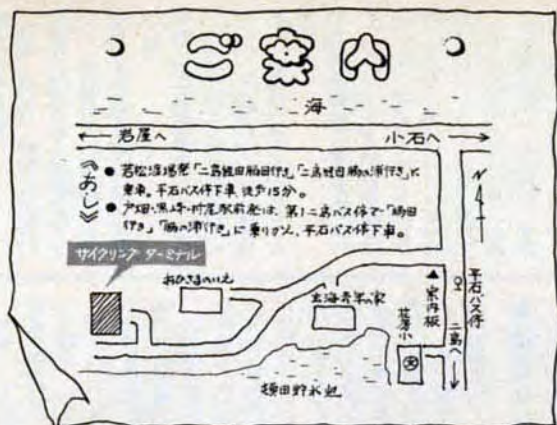 ご案内
海
← 岩屋へ
小石へ →
《あし》
● 若松渡場発「二島経由脇田行き」「二島経由脇の浦行き」に
乗車。平石バス停下車 徒歩15分。
● 戸畑・黒崎・折尾駅前発は、第1二島バス停で「脇田
行き」「脇の浦行き」に乗りかえ、平石バス停下車。
N
サイクリング ターミナル
おひさまのいえ
玄海青年の家
▲案内板
平石バス停
二島へ
小
文
頓田貯水池